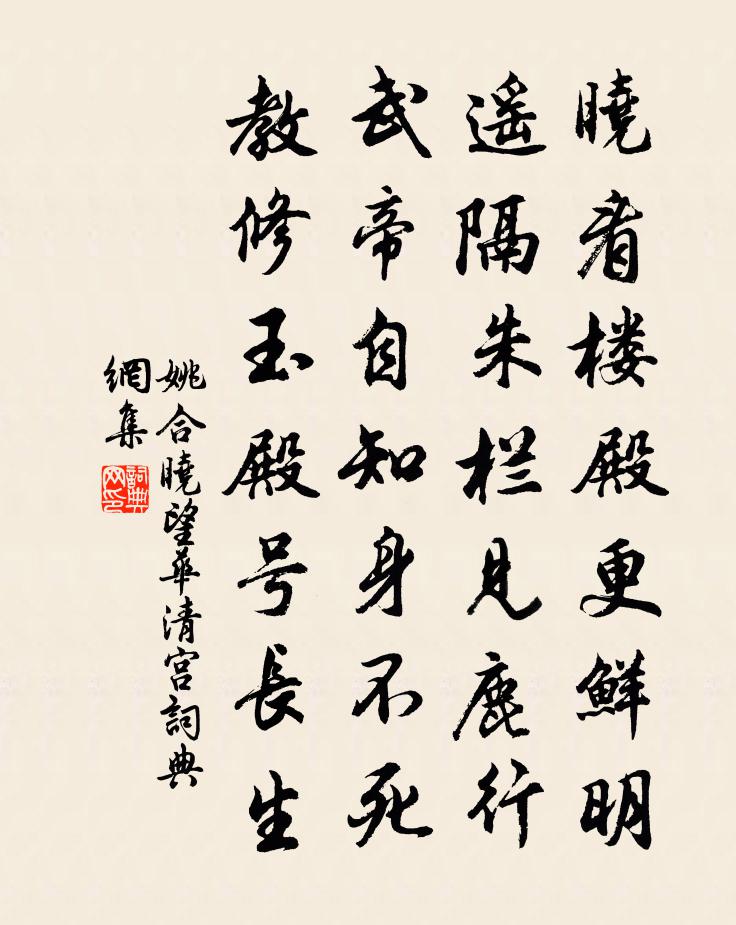 曉看楼殿更鮮明
遥隔朱栏見鹿行
武帝自知身不死
教修玉殿号長生
姚合曉望華清宫詞典
網集
詞典网印